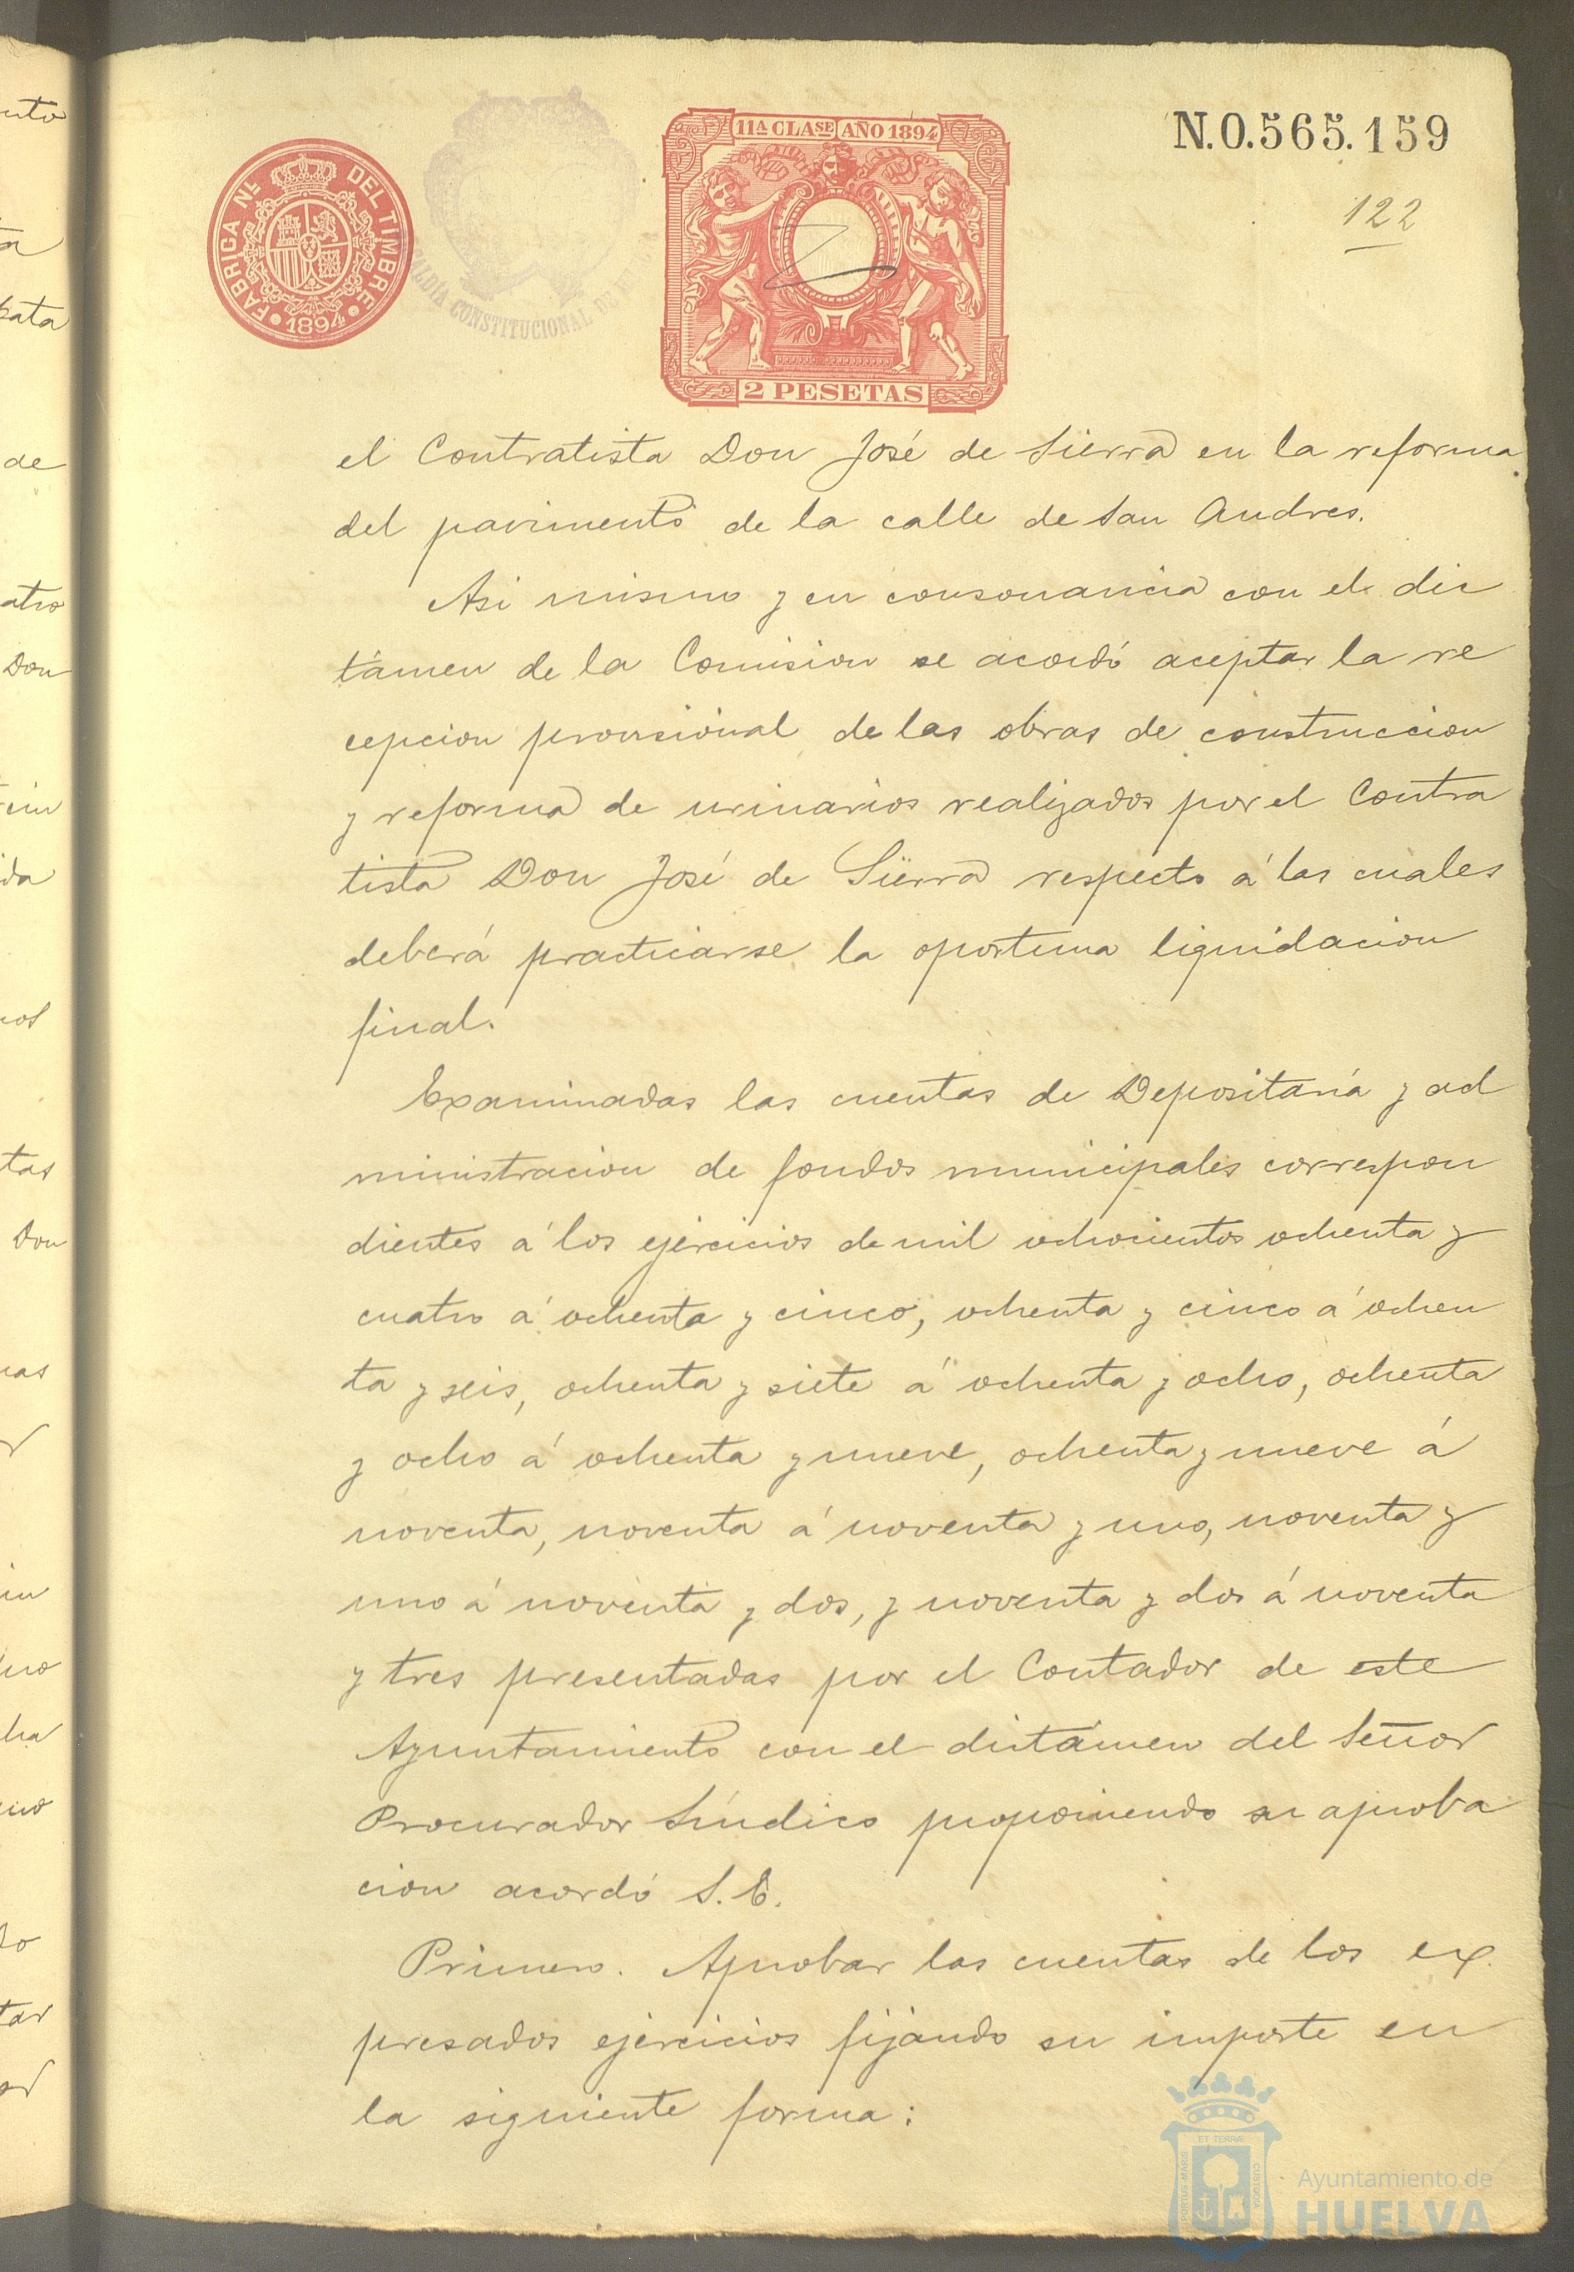 11ª CLASE AÑO 1894
N.0.565.159
FABRICA NL. DEL TIMBRE
1894
CONSTITUCIONAL DE
122
2 PESETAS
el Contratista Don José de Sierra en la reforma
del pavimento de la calle de San Andres.
Asi mismo y en consonancia con el dic
támen de la Comision se acordó aceptar la re
cepcion provisional de las obras de construccion
y reforma de urinarios realizados por el Contra
tista Don José de Sierra respecto á las cuales
deberá practicarse la oportuna liquidacion
final.
Examinadas las cuentas de Depositaría y ad
ministracion de fondos municipales correspon
dientes á los ejercicios de mil ochocientos ochenta y
cuatro á ochenta y cinco, ochenta y cinco á ochen
ta y seis, ochenta y siete á ochenta y ocho, ochenta
y ocho á ochenta y nueve, ochenta y nueve á
noventa, noventa á noventa y uno, noventa y
uno á noventa y dos, y noventa y dos á noventa
y tres presentadas por el Contador de este
Ayuntamiento con el dictámen del Señor
Procurador Síndico proponiendo su aproba
cion acordó S.E.
Primero. Aprobar las cuentas de los ex
presados ejercicios fijando su importe en
la siguiente forma:
Ayuntamiento de
HUELVA